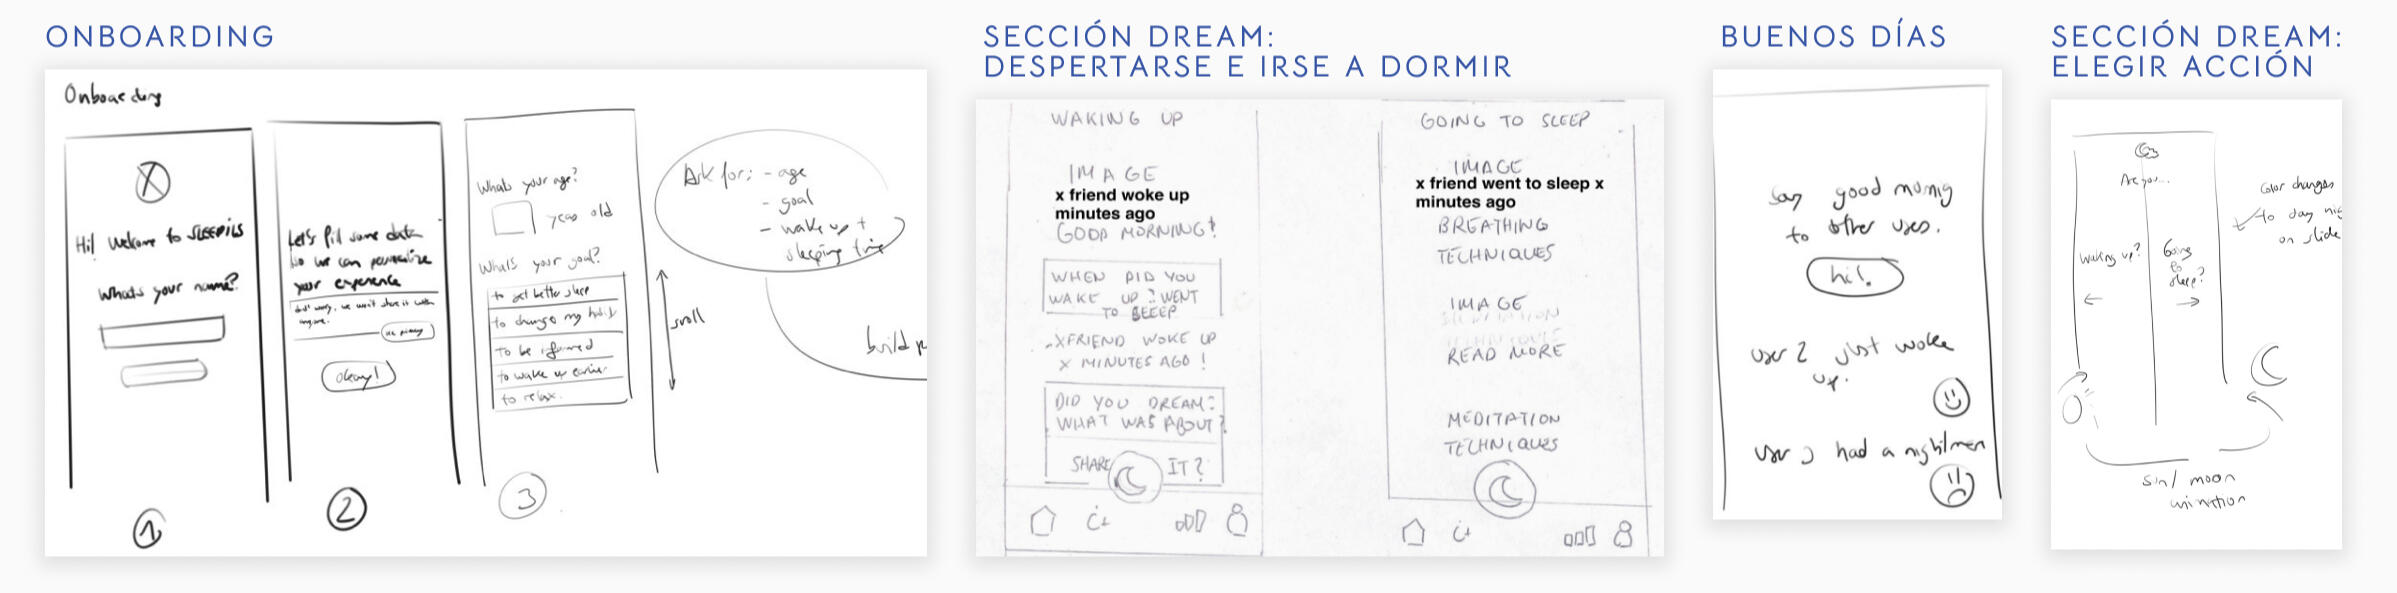 ONBOARDING
Onboarding
Hi! Welcome to SLEEPIES
Whats your name?
1
Let's fil some data
so we can personalize
your experience
don't worry, we won't share it with
anyone.
okay!
2
Whats your age?
years old
Whats your goal?
to get better sleep
to change my habits
to be informed
to wake up earlier
to relax.
3
scroll
Ask for: - age
- goal
- wake up +
sleeping time
build
SECCIÓN DREAM:
DESPERTARSE E IRSE A DORMIR
WAKING UP
IMAGE
x friend woke up
minutes ago
GOOD MORNING!
WHEN DID YOU
WAKE UP? WENT
TO SLEEP
XFRIEND WOKE UP
X MINUTES AGO!
DID YOU DREAM?
WHAT WAS ABOUT?
SHARE IT?
GOING TO SLEEP
IMAGE
x friend went to sleep x
minutes ago
BREATHING
TECHNIQUES
IMAGE
READ MORE
MEDITATION
TECHNIQUES
BUENOS DÍAS
Say good morning
to other users.
hi!
user 2 just woke
up.
user 3 had a nightmare
SECCIÓN DREAM:
ELEGIR ACCIÓN
Are you...
waking up?
Going
to
sleep?
Color changes
to day nig
on slide
sun/ moon
animation